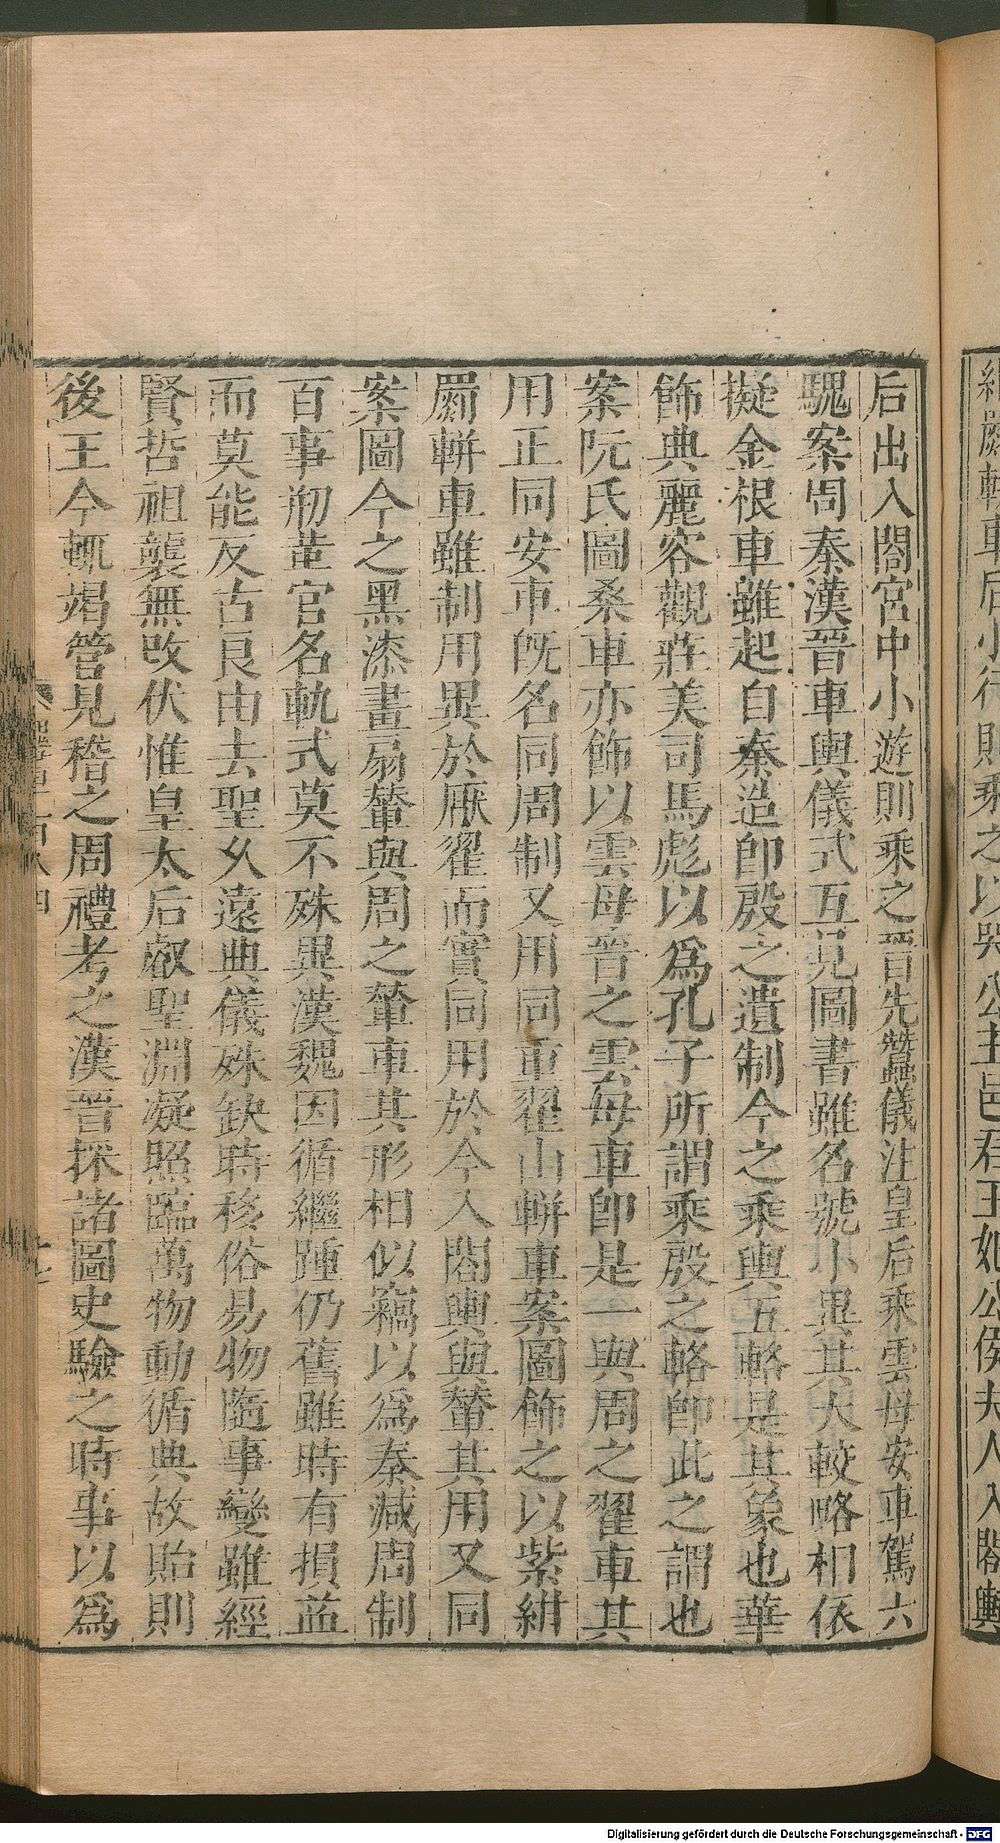 后出入閤宮中小遊則乘之晉先蠶儀注皇后乘雲母安車駕六
騩案周秦漢晉車輿儀式互見圖書雖名號小異其大較略相依
擬金根車雖起自秦造卽殷之遺制今之乘輿五輅是其象也華
飾典麗容觀莊美司馬彪以爲孔子所謂乘殷之輅卽此之謂也
案阮氏圖桑車亦飾以雲母晉之雲母車卽是一與周之翟車其
用正同安車旣名同周制又用同重翟山軿車案圖飾之以紫紺
罽軿車雖制用異於厭翟而實同用於今入閤輿與輦其用又同
案圖今之黑漆畫扇輦與周之輦車其形相似竊以爲秦減周制
百事剏革官名軌式莫不殊異漢魏因循繼踵仍舊雖時有損益
而莫能反古良由去聖久遠典儀殊缺時移俗易物隨事變雖經
賢哲祖襲無改伏惟皇太后叡聖淵凝照臨萬物動循典故貽則
後王今輒竭管見稽之周禮考之漢晉採諸圖史驗之時事以爲
車后小行則乘之以哭公主邑君王妃公侯夫人入閤輿
Digitalisierung gefördert durch die Deutsche Forschungsgemeinschaft - DFG